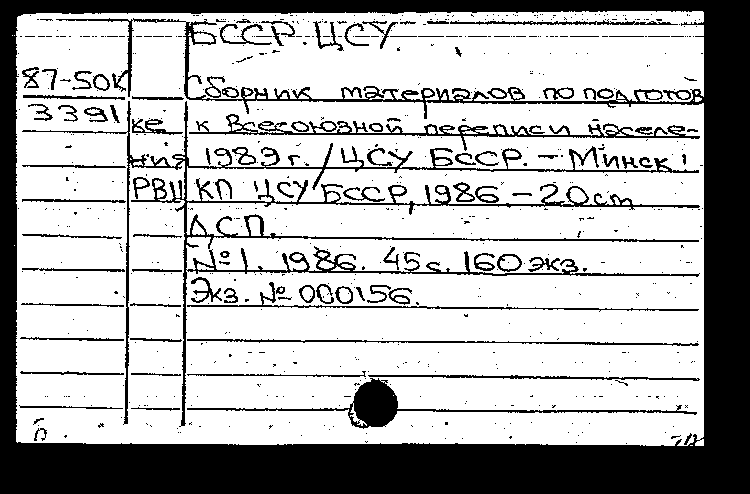 БССР. ЦСУ.
87-50К Сборник материалов по подготов
3391 ке к Всесоюзной переписи населе-
ния 1989 г. / ЦСУ БССР. - Минск:
РВЦ КП ЦСУ БССР, 1986 - 20 cm
ДСП.
№1. 1986. 45 с. 160 экз.
Экз. № 000156.